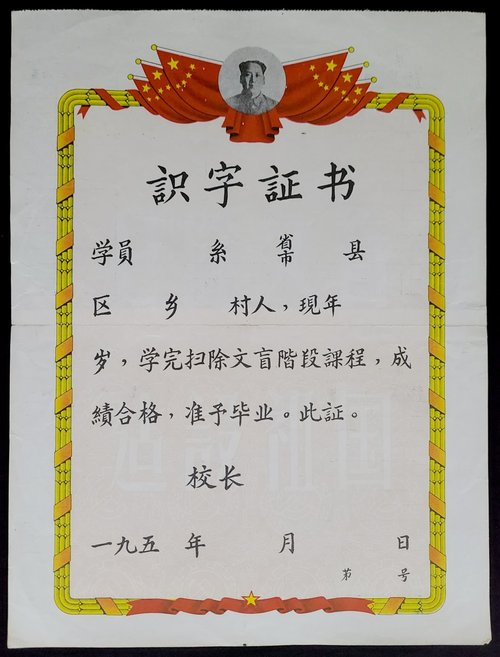 識字証书
学員 糸 省市 县
区 乡 村人，現年
岁，学完扫除文盲階段課程，成
績合格，准予毕业。此証。
校长
一九五 年 月 日
苐 号